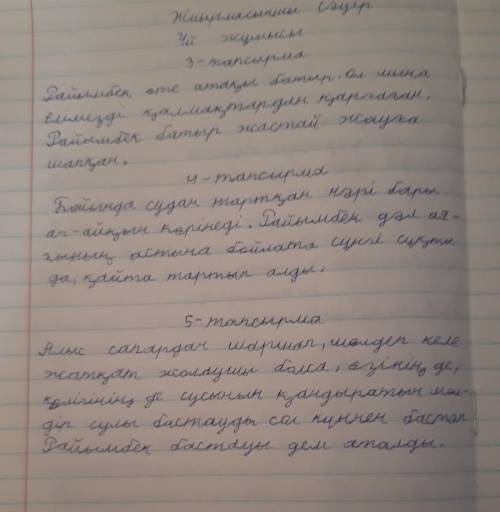 Жиырмасыншы сәуір
Үй жұмысы
3-тапсырма
Райымбек өте атақы батыр. Ол мына
елімізді қалмақтардан қарғаған.
Райымбек батыр жастай жауға
шапқан.
4-тапсырма
Бойында судан тартқан нәрі бары
ап-айқын көрінеді. Райымбек дәл ая-
ғының астына бойлата сүңгі сұқты
да, қайта тартып алды.
5-тапсырма
Алыс сапардан шаршап, шөлдеп келе
жатқат жолаушы болса, өзінің де,
көлігінің де сусынын қандыратын мөл-
дір сулы бастауды сол күннен бастап
Райымбек бастауы деп аталды.